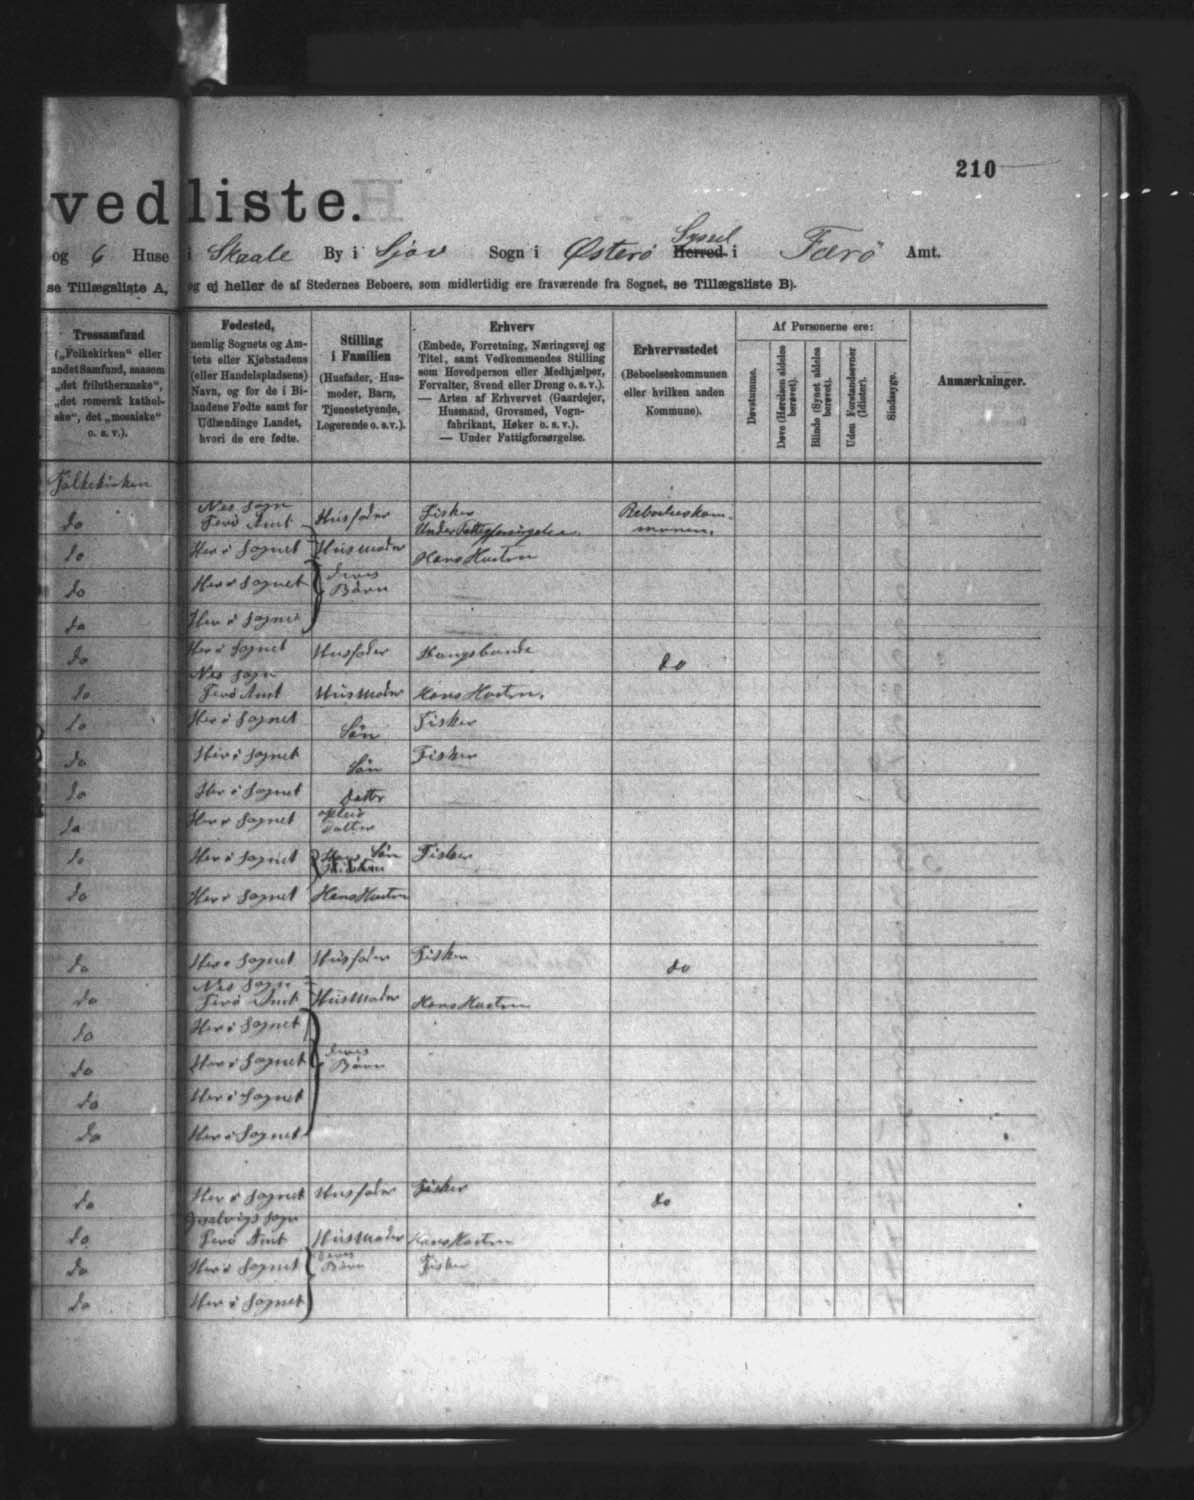 210
vedliste.
og 6 Huse i Skaale By i Sjov Sogn i Østerø Syssel Herred i Færö Amt.
se Tillægsliste A, og ej heller de af Stedernes Beboere, som midlertidig ere fraværende fra Sognet, se Tillægsliste B).
Trossamfund
(„Folkekirken“ eller
andet Samfund, saasom
„det frilutheranske“,
„det romersk kathol-
ske“, det „mosaiske“
o. s. v.).
Fødested,
nemlig Sognets og Am-
tets eller Kjøbstadens
(eller Handelspladsens)
Navn, og for de i Bi-
landene Fødte samt for
Udlændinge Landet,
hvori de ere fødte.
Stilling
i Familien
(Husfader, Hus-
moder, Barn,
Tjenestetyende,
Logerende o. s. v.).
Erhverv
(Embede, Forretning, Næringsvej og
Titel, samt Vedkommendes Stilling
som Hovedperson eller Medhjælper,
Forvalter, Svend eller Dreng o. s. v.).
— Arten af Erhvervet (Gaardejer,
Husmand, Grovsmed, Vogn-
fabrikant, Høker o. s. v.).
— Under Fattigforsørgelse.
Erhvervsstedet
(Beboelseskommunen
eller hvilken anden
Kommune).
Af Personerne ere:
Døvstumme.
Døve (Hørelsen aldeles
berøvet).
Blinde (Synet aldeles
berøvet).
Uden Forstandsevner
(Idioter).
Sindssyge.
Anmærkninger.
Folkekirken
do Nes Sogn Færö Amt Husfader Fisker Under Fattigforsörgelse. Beboelseskom-
munen.
do Her i Sognet Husmoder Hans Hustru
do Her i Sognet deres Börn
do Her i Sognet
do Her i Sognet Husfader Kongsbonde do
do Nes Sogn Færö Amt Husmoder Hans Hustru.
do Her i Sognet Sön Fisker
do Her i Sognet Sön Fisker
do Her i Sognet Datter
do Her i Sognet Datter
do Her i Sognet Sön Fisker
do Her i Sognet Hans Hustru
do Her i Sognet Husfader Fisker do
do Nes Sogn Færö Amt Husmoder Hans Hustru
do Her i Sognet
do Her i Sognet deres Börn
do Her i Sognet
do Her i Sognet
do Her i Sognet Husfader Fisker do
do Sogn Færö Amt Husmoder Hans Hustru
do Her i Sognet deres Börn Fisker
do Her i Sognet